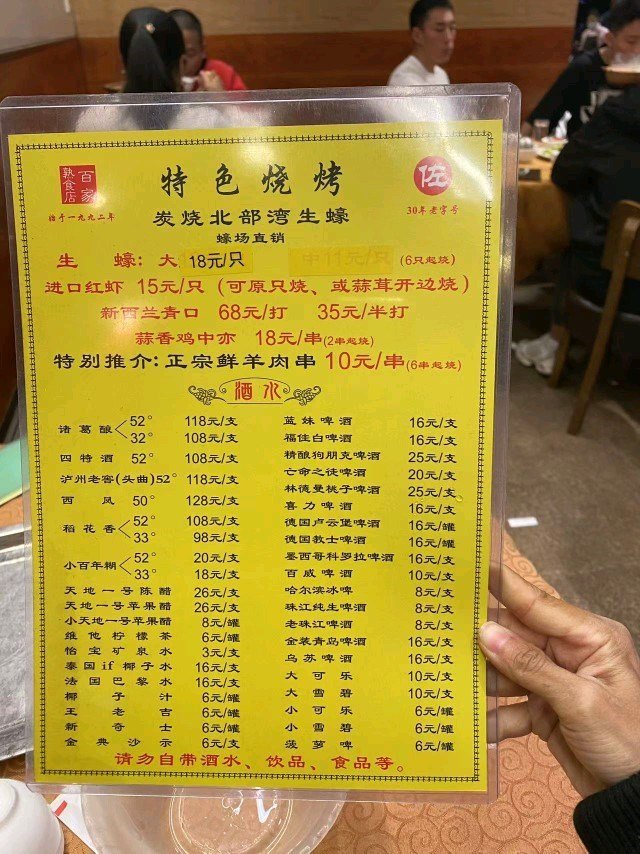 百家
熟食店
始于一九九二年
特色烧烤
佐
30年老字号
炭烧北部湾生蠔
蠔场直销
生 蠔: 大 18元/只 中11元/只 (6只起烧)
进口红虾 15元/只 (可原只烧、或蒜茸开边烧)
新西兰青口 68元/打 35元/半打
蒜香鸡中亦 18元/串(2串起烧)
特别推介: 正宗鲜羊肉串 10元/串(6串起烧)
酒水
诸葛酿 52° 118元/支
32° 108元/支
四特酒 52° 108元/支
泸州老窖(头曲)52° 118元/支
西凤 50° 128元/支
稻花香 52° 108元/支
33° 98元/支
小百年糊 52° 20元/支
33° 18元/支
天地一号陈醋 26元/支
天地一号苹果醋 26元/支
小天地一号苹果醋 8元/罐
维他柠檬茶 6元/罐
怡宝矿泉水 3元/支
泰国if椰子水 16元/支
法国巴黎水 16元/支
椰子汁 6元/罐
王老吉 6元/罐
新奇士 6元/罐
金典沙示 6元/支
蓝妹啤酒 16元/支
福佳白啤酒 16元/支
精酿狗朋克啤酒 25元/支
亡命之徒啤酒 20元/支
林德曼桃子啤酒 25元/支
喜力啤酒 16元/支
德国卢云堡啤酒 16元/罐
德国教士啤酒 16元/罐
墨西哥科罗拉啤酒 16元/支
百威啤酒 10元/支
哈尔滨冰啤 8元/支
珠江纯生啤酒 8元/支
老珠江啤酒 8元/支
金装青岛啤酒 16元/支
乌苏啤酒 16元/支
大可乐 10元/支
大雪碧 10元/支
小可乐 6元/罐
小雪碧 6元/罐
菠萝啤 6元/罐
请勿自带酒水、饮品、食品等。